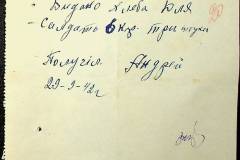 - Выдано Хлеба Для
- Солдат 6 кгр. Три штуки
Получил Андрей
29-9-42г